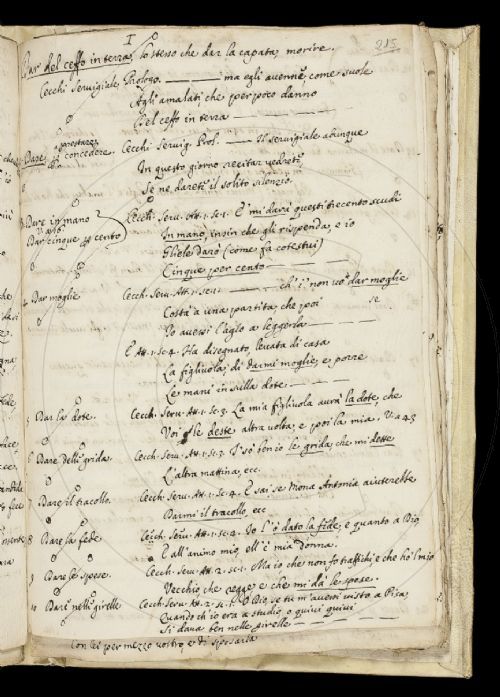 I
215
Dar del ceffo in terra, lo stesso che dar la capata, morire.
Cecchi Servigiale, Prologo. ——— ma egli avenne come suole
Agli amalati, che per poco danno
Del ceffo in terra ———
prestarzi
Dare, concedere. Cecchi Servig. Prol. —— Il servigiale adunque
In questo giorno recitar vedrete
Se ne darete il solito silenzio.
Dare in mano Cecchi Serv. Att. 1. Sc. 1. E' mi darà questi trecento scudi
Dar cinque per cento In mano, insin che gli rispenda, e io
Gliele darò (come fa cotestui)
Cinque per cento ———
4 Dar moglie Cecchi Serv. Att. 1. Sc. ——— ch' i' non vo' dar moglie
Costà a una partita che poi se
Io avessi l'aglo a leggerla ———
E Att. 1. Sc. 4. Ha disegnato, levata di casa
La figliuola, di darmi moglie, e porre
Le mani in sulla dote ———
5 Dar la dote. Cecchi Serv. Att. 1. Sc. 3. La mia figliuola avrà la dote, che
Voi le deste altra volta, e poi la mia.
6 Dare delle grida. Cecchi Serv. Att. 1. Sc. 3. I' sò ben io le grida, che mi dette
L'altra mattina, ecc.
7 Dare il tracollo. Cecchi Serv. Att. 1. Sc. 4. E sai se Mona Antonia aiuterebbe
Darmi il tracollo, ecc
8 Dare la fede Cecchi Serv. Att. 1. Sc. 4. Io l'è dato la fede, e quanto a Dio,
E all'animo mio, ell'è mia donna.
9 Dare le spese. Cecchi Serv. Att. 2. Sc. 1. Ma io che non fo traffichi, e che hò 'l mio
Vecchio che regge e che mi dà le spese.
10 Dare nelle girelle Cecchi Serv. Att. 2. Sc. 1. O Dio, se tu m'avessi visto a Pisa,
Quando ch'io era a studio, o quivi quivi
Si dava ben nelle girelle ———
con lei per mezzo vostro, e di sposarla